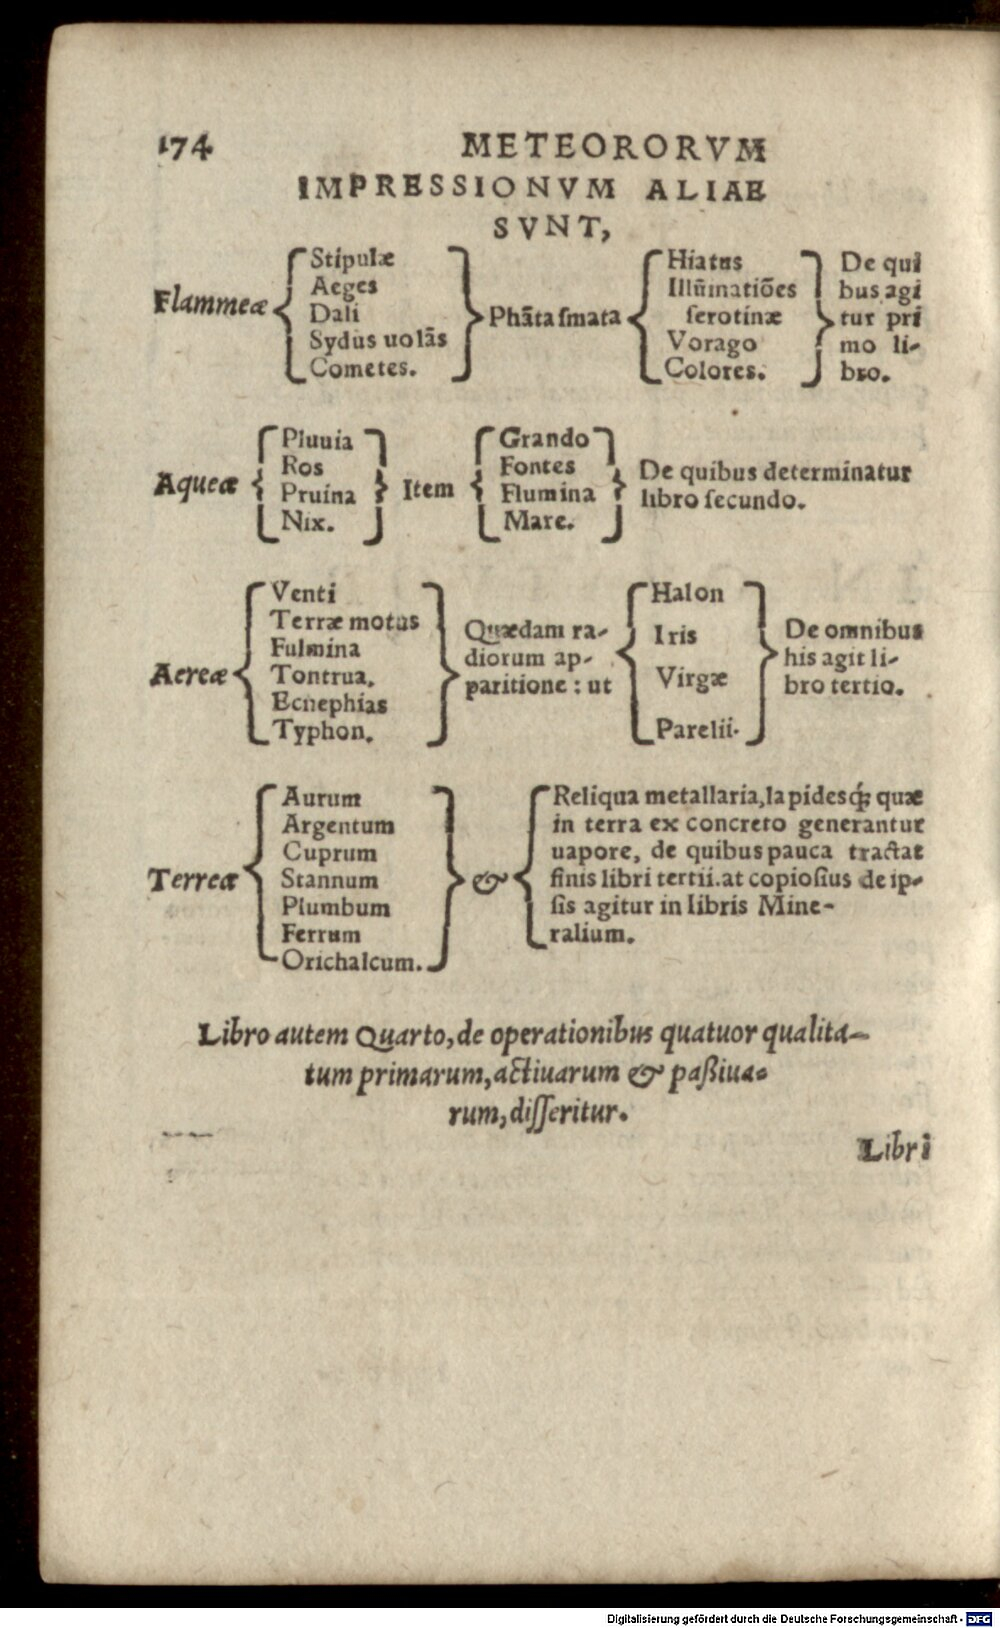 174 METEORORVM
IMPRESSIONVM ALIAE
SVNT,
Flammeæ
Stipulæ
Aeges
Dali
Sydus uolãs
Cometes.
Phãtasmata
Hiatus
Illũinatiões
serotinæ
Vorago
Colores.
De qui
bus agi
tur pri
mo li-
bro.
Aqueæ
Pluuia
Ros
Pruina
Nix.
Item
Grando
Fontes
Flumina
Mare.
De quibus determinatur
libro secundo.
Aereæ
Venti
Terræ motus
Fulmina
Tontrua.
Ecnephias
Typhon.
Quædam ra-
diorum ap-
paritione : ut
Halon
Iris
Virgæ
Parelii.
De omnibus
his agit li-
bro tertio.
Terreæ
Aurum
Argentum
Cuprum
Stannum
Plumbum
Ferrum
Orichalcum.
&
Reliqua metallaria, lapidesq́; quæ
in terra ex concreto generantur
uapore, de quibus pauca tractat
finis libri tertii. at copiosius de ip-
sis agitur in libris Mine-
ralium.
Libro autem Quarto, de operationibus quatuor qualita-
tum primarum, actiuarum & paßiua-
rum, disseritur.
Libri
Digitalisierung gefördert durch die Deutsche Forschungsgemeinschaft - DFG